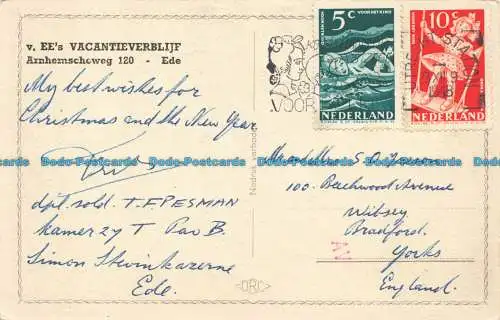 v. EE's VACANTIEVERBLIJF
Arnhemscheweg 120 - Ede
My best wishes for
Christmas and the New Year
dpl. sold. T. EPESMAN
kamer 27 T Pav B.
Simon Stevinkazerne
Ede.
5c
VOOR HET KIND
NEDERLAND
10c
NEDERLAND
VOOR
Nadruk verboden
ORC
Mr and Mrs S.
100. Beechwood Avenue
Wibsey
Bradford.
Yorks
England.
Dodo-Postcards Dodo-Postcards Dodo-Postcards Dodo-Postcards Dodo-Postcards